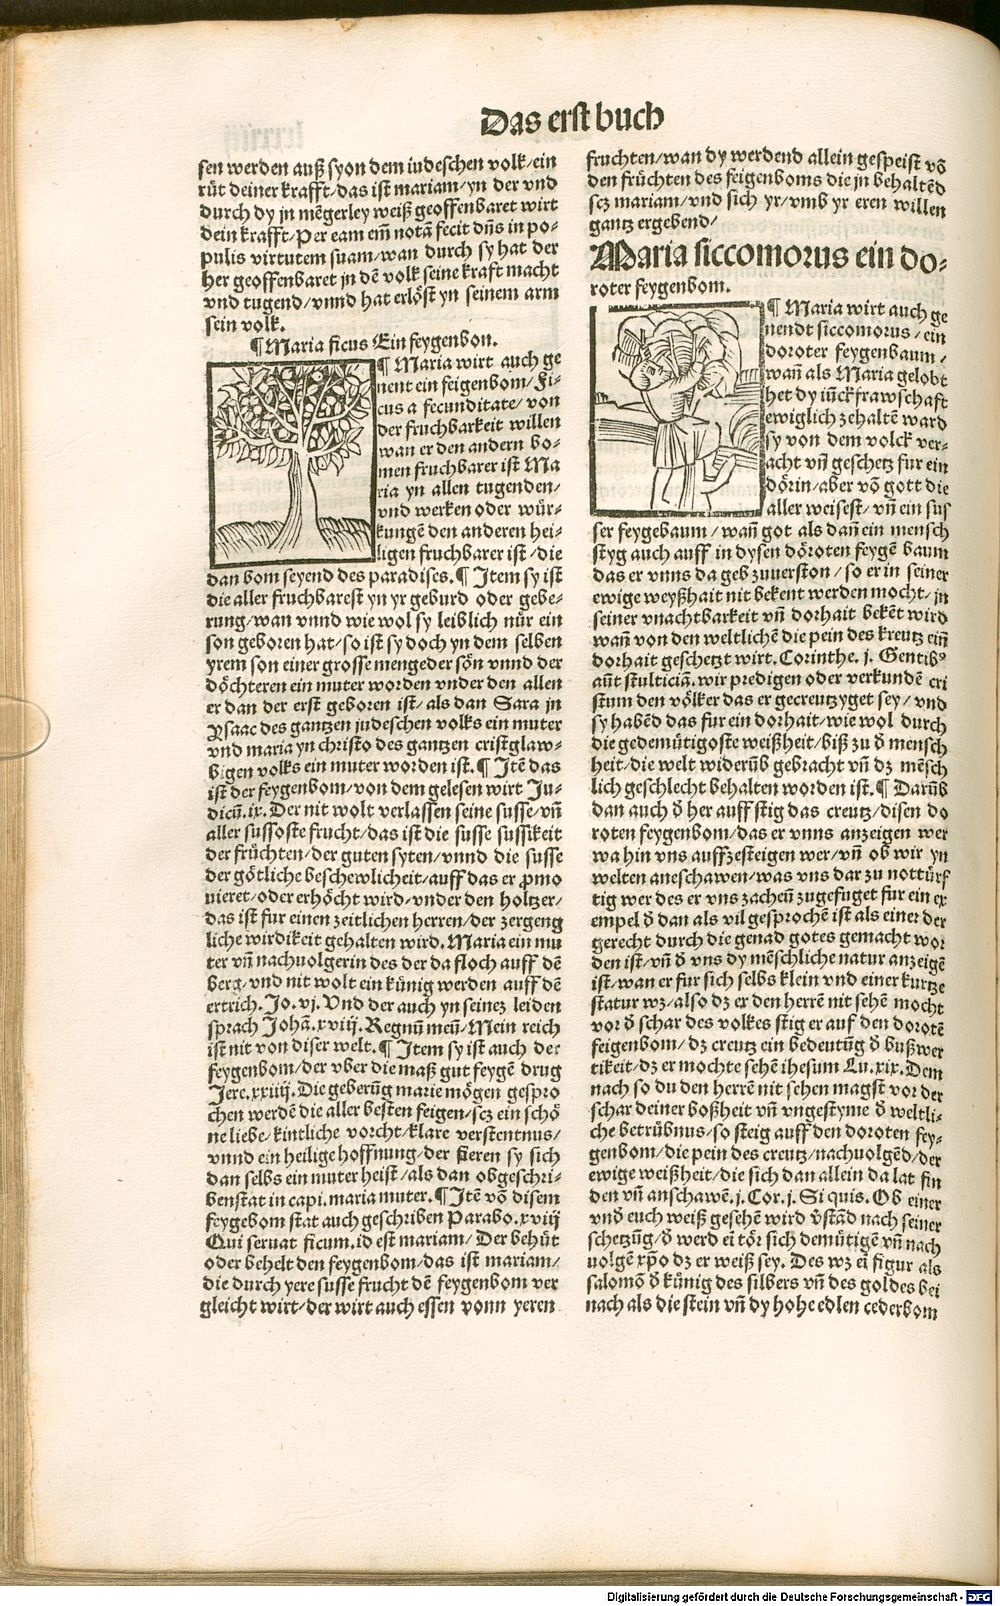 Das erst buch
sen werden auß syon dem iudeschen volk/ein
růt deiner krafft/das ist mariam/yn der vnd
durch dy jn mēgerley weiß geoffenbaret wirt
dein krafft/Per eam em̄ notā fecit dn̄s in po-
pulis virtutem suam/wan durch sy hat der
her geoffenbaret jn dē volk seine kraft macht
vnd tugend/vnnd hat erlöst yn seinem arm
sein volk.
¶ Maria ficus Ein feygenbon.
¶ Maria wirt auch ge
nent ein feigenbom/Fi-
cus a fecunditate/von
der fruchbarkeit willen
wan er den andern bo-
men fruchbarer ist Ma
ria yn allen tugenden/
vnd werken oder wür-
kungē den anderen hei-
ligen fruchbarer ist/die
dan bom seyend des paradises. ¶ Item sy ist
die aller fruchbarest yn yr geburd oder gebe-
rung/wan vnnd wie wol sy leiblich nůr ein
son geboren hat/so ist sy doch yn dem selben
yrem son einer grosse menge der sön vnnd der
döchteren ein muter worden vnder den allen
er dan der erst geboren ist/als dan Sara jn
Ysaac des gantzen judeschen volks ein muter
vnd maria yn christo des gantzen cristglaw-
bigen volks ein muter worden ist. ¶ Itē das
ist der feygenbom/von dem gelesen wirt Ju-
dicū.ix. Der nit wolt verlassen seine susse/vn̄
aller sussoste frucht/das ist die susse sussikeit
der früchten/der guten syten/vnnd die susse
der götliche beschewlicheit/auff das er ꝓmo
uieret/oder erhöcht wird/vnder den höltzer/
das ist fur einen zeitlichen herren/der zergeng
liche wirdikeit gehalten wird. Maria ein mu
ter vn̄ nachuolgerin des der da floch auff dē
berg/vnd nit wolt ein künig werden auff dē
ertrich. Jo.vj. Vnd der auch yn seinez leiden
sprach Johā.xviij. Regnū meū/Mein reich
ist nit von diser welt. ¶ Item sy ist auch der
feygenbom/der vber die maß gut feygē drug
Jere.xxiiij. Die geberūg marie mögen gespro
chen werdē die aller besten feigen/scz ein schö
ne liebe/kintliche vorcht/klare verstentnus/
vnnd ein heilige hoffnung/der fieren sy sich
dan selbs ein muter heist/als dan obgeschri-
ben stat in capi. maria muter. ¶ Itē vō disem
feygebom stat auch geschriben Parabo.xviij
Qui seruat ficum.id est mariam/Der behüt
oder behelt den feygenbom/das ist mariam/
die durch yere susse frucht dē feygenbom ver
gleicht wirt/der wirt auch essen vonn yeren
fruchten/wan dy werdend allein gespeist vō
den früchten des feigenboms die jn behaltēd
scz mariam/vnd sich yr/vmb yr eren willen
gantz ergebend/
Maria siccomorus ein do-
roter feygenbom.
¶ Maria wirt auch ge
nendt siccomorus/ein
doroter feygenbaum/
wan̄ als Maria gelobt
het dy iūckfrawschaft
ewiglich zehaltē ward
sy von dem volck ver-
acht vn̄ geschetz fur ein
dörin/aber vō gott die
aller weisest/vn̄ ein sus
ser feygebaum/wan̄ got als dan̄ ein mensch
styg auch auff in dysen döroten feygē baum
das er vnns da geb zuuerston/so er in seiner
ewige weyßhait nit bekent werden mocht/jn
seiner vnachtbarkeit vn̄ dorhait bekēt wird
wan̄ von den weltlichē die pein des kreutz ein̄
dorhait geschetzt wirt. Corinthe.j. Gentibꝰ
aūt stulticiā. wir predigen oder verkundē cri
stum den völker das er gecreutzyget sey/vnd
sy habēd das fur ein dorhait/wie wol durch
die gedemütigoste weißheit/biß zu d̄ mensch
heit/die welt widerūb gebracht vn̄ dz mēsch
lich geschlecht behalten worden ist. ¶ Darūb
dan auch d̄ her auff stig das creutz/disen do
roten feygenbom/das er vnns anzeigen wer
wa hin vns auffzesteigen wer/vn̄ ob wir yn
welten aneschawen/was vns dar zu nottürf
tig wer des er vns zacheū zugefuget fur ein ex
empel d̄ dan als vil gesprochē ist als einer der
gerecht durch die genad gotes gemacht wor
den ist/vn̄ d̄ vns dy mēschliche natur anzeigē
ist/wan er fur sich selbs klein vnd einer kurtze
statur wz/also dz er den herrē nit sehē mocht
vor d̄ schar des volkes stig er auf den dorotē
feigenbom/dz creutz ein bedeutūg d̄ bußwer
tikeit/dz er mochte sehē ihesum Lu.xix. Dem
nach so du den herrē nit sehen magst vor der
schar deiner boßheit vn̄ vngestyme d̄ weltli-
che betrübnus/so steig auff den doroten fey-
genbom/die pein des creutz/nachuolgēd/der
ewige weißheit/die sich dan allein da lat fin
den vn̄ anschawē.j. Cor.j. Si quis. Ob einer
vnd̄ euch weiß gesehē wird v̄stād nach seiner
schetzūg/d̄ werd ei tör sich demütigē vn̄ nach
uolgē xp̄o dz er weiß sey. Des wz ei figur als
salomō d̄ künig des silbers vn̄ des goldes bei
nach als die stein vn̄ dy hohe edlen cederbom
Digitalisierung gefördert durch die Deutsche Forschungsgemeinschaft - DFG